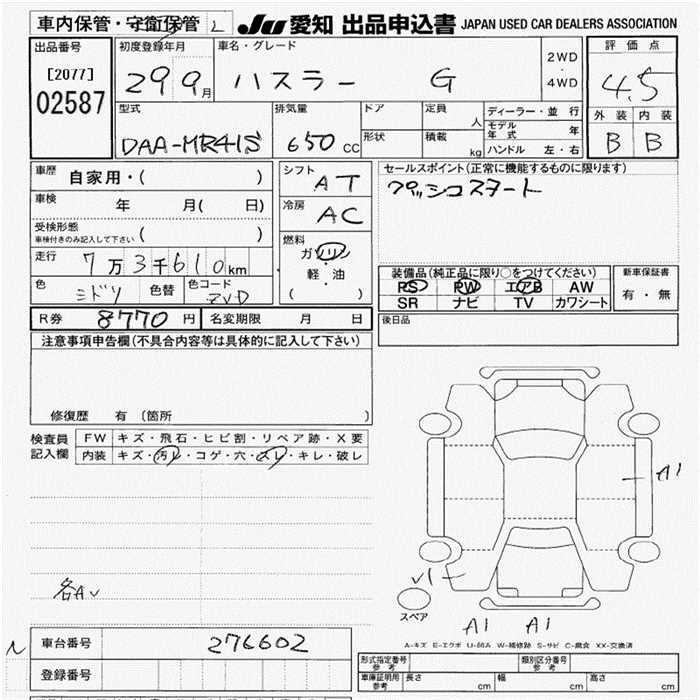 車内保管・守衛保管 L
JU 愛知 出品申込書 JAPAN USED CAR DEALERS ASSOCIATION
出品番号
[2077]
02587
初度登録年月
29 9月
車名・グレード
ハスラー G
2WD
・
4WD
評価点
4.5
外装 内装
B B
型式
DAA-MR41S
排気量
650 cc
ドア
形状
定員 人
積載 kg
ディーラー・並行
モデル年式 年
ハンドル 左・右
車歴 自家用・( )
車検 年 月( 日)
受検形態
車検付きのみ記入して下さい ( )
走行 7万3千610km
色 ミドリ 色替 色コード ZVD
シフト AT
冷房 AC
燃料
ガソリン
軽・油
( )
セールスポイント(正常に機能するものに限ります)
プッシュスタート
装備品(純正品に限り○をつけてください)
PS PW エアB AW
SR ナビ TV カワシート
新車保証書
有・無
R券 8770円 名変期限 月 日
後日品
注意事項申告欄(不具合内容等は具体的に記入して下さい)
修復歴 有(箇所 )
検査員記入欄
FW キズ・飛石・ヒビ割・リペア跡・X要
内装 キズ・汚レ・コゲ・穴・スレ・キレ・破レ
A1
各A
V1
スペア
A1 A1
A-キズ E-エクボ U-凹A W-補修跡 S-サビ C-腐食 XX-交換済
車台番号 276602
登録番号
形式指定番号 参考
類別区分番号 参考
車庫証明用 参考 長さ cm 幅 cm 高さ cm